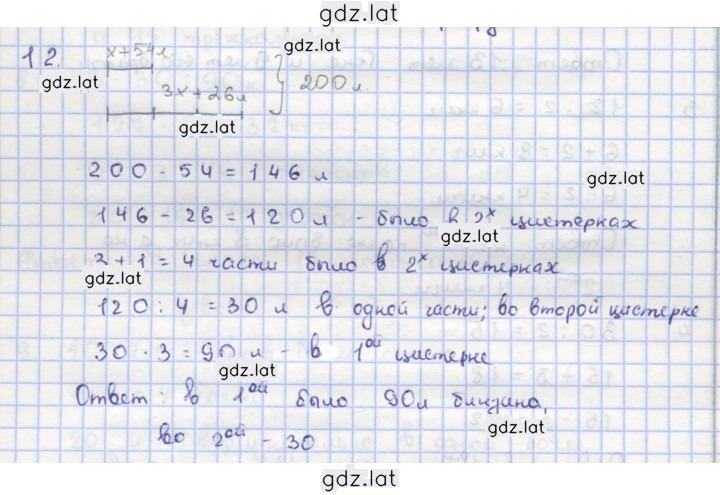 gdz.lat
12. x+54л. gdz.lat
gdz.lat 3x+26л } 200 л.
gdz.lat
200 - 54 = 146 л
gdz.lat
146 - 26 = 120 л - было в 2х цистернах
3 + 1 = 4 части было в 2х цистернах
gdz.lat
120 : 4 = 30 л в одной части; во второй цистерне
30 · 3 = 90 л - в 1ой цистерне
gdz.lat
Ответ: в 1ой было 90л бинзина,
gdz.lat
во 2ой - 30
gdz.lat